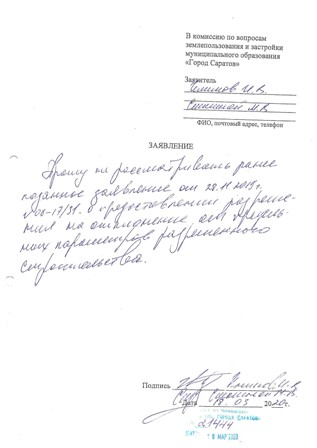 В комиссию по вопросам
землепользования и застройки
муниципального образования
«Город Саратов»
Заявитель
И.В.
М.В.
ФИО, почтовый адрес, телефон
ЗАЯВЛЕНИЕ
Прошу не рассматривать ранее
поданное заявление от 28.11.2019г.
о предоставлении разреше-
ния на отклонение от предель-
ных параметров разрешенного
строительства.
Подпись
Дата 18.03 2020г.
ГОРОД САРАТОВ
18 МАР 2020